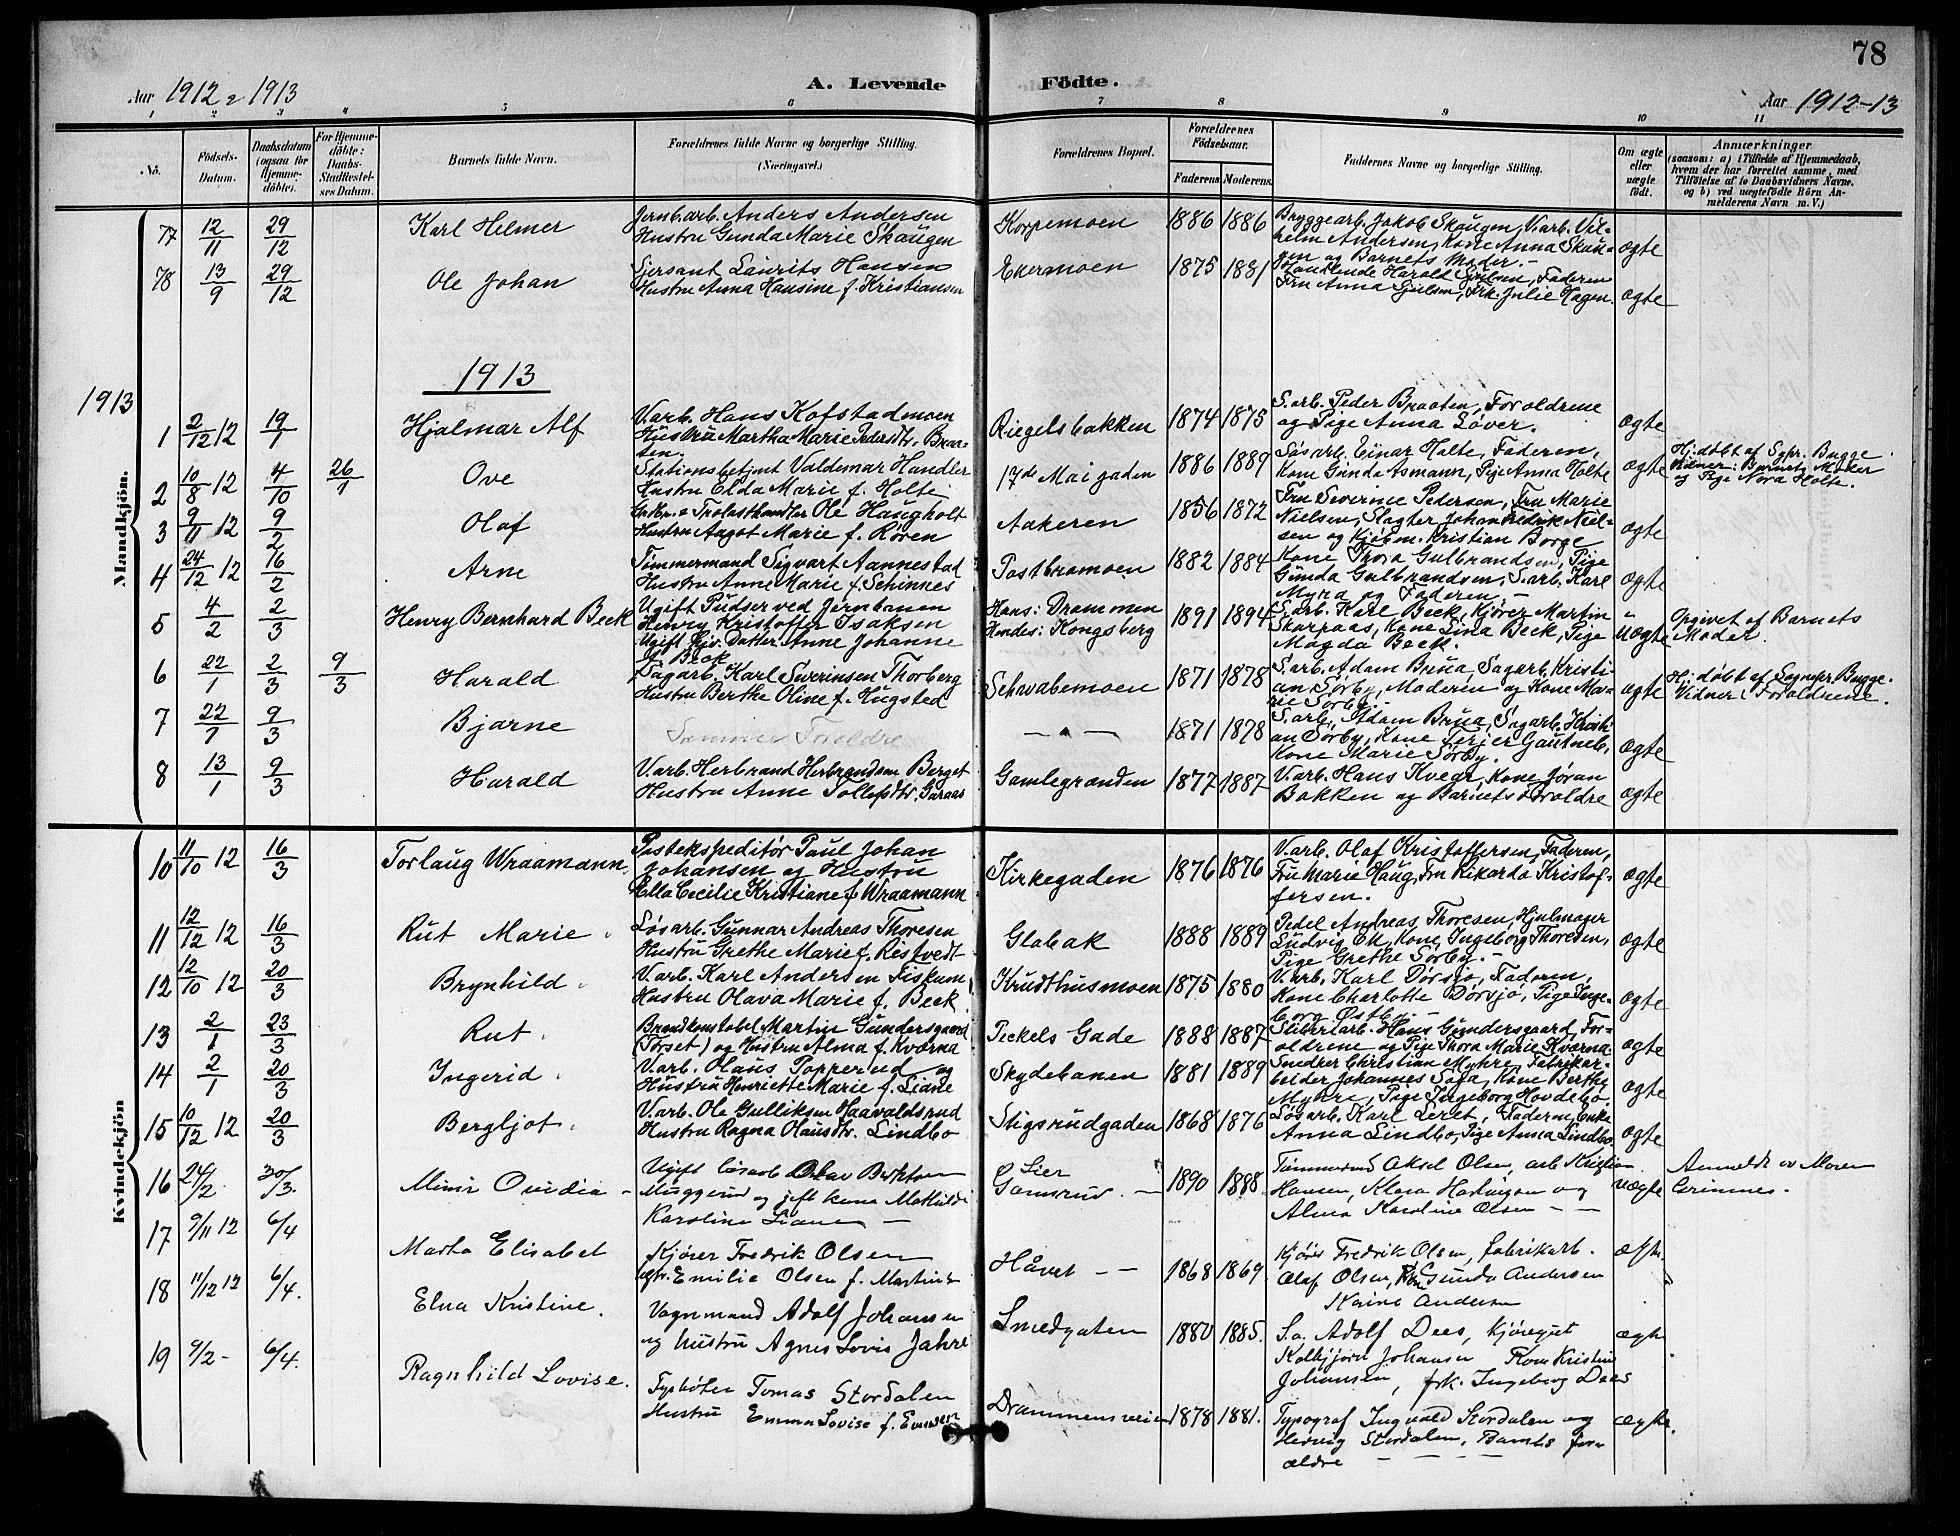 78
Aar 1912 & 1913
A. Levende Födte.
Aar 1912-13
1 2 3 4 5 6 7 8 9 10 11
No.
Födsels-Datum.
Daabsdatum (ogsaa for Hjemmedöbte).
For Hjemmedöbte: Daabs-Stadfæstelses Datum.
Barnets fulde Navn.
Forældrenes fulde Navne og borgerlige Stilling. (Næringsvei.)
Forældrenes Bopæl.
Forældrenes Födselsaar.
Faderens Moderens
Faddernes Navne og borgerlige Stilling.
Om ægte eller uægte født.
Anmærkninger
(saasom: a) i Tilfælde af Hjemmedaab, hvem der har forrettet samme, med Tilföielse af to Daabsvidners Navne, og b) ved uægtefödte Börn Anmelderens Navn m. V.)
Mandkjön.
77 12/11 29/12 Karl Helmer
Jernb.arb. Anders Andersen
Hustru Gunda Marie Skaugen
Korpemoen 1886 1886
Bryggearb. Jakob Skaugen, V.arb. Vil-
helm Andersen, Kone Anna Skau-
gen og Barnets Moder.-
ægte
78 13/9 29/12 Ole Johan
Sjersant Laurits Hansen
Hustru Anna Hansine f. Kristiansen
Ekermoen 1875 1881
Handlende Harald Gjulsen, Faderen
Fru Anna Gjulsen, Frk. Julie Hagen.
ægte
1913
1913
1 2/12 12 19/1 Hjalmar Alf
V.arb. Hans Kofstadmoen
Hustru Martha Marie Pedersdtr. Braa-
ten.
Riegelsbakken 1874 1875
S.arb. Peder Braaten, Forældrene
og Pige Anna Løver.
ægte
2 10/8 12 4/10 26/1 Ove
Stationsbetjent Valdemar Handler
Hustru Elda Marie f. Holte
17de Mai gaden 1886 1889
Søsarb. Einar Holte, Faderen,
Kone Gunda Asmann, Pige Anna Holte
ægte
Hj. døbt af Sgpr. Bugge.
Vidner: Barnets Moder
og Pige Nora Holte.
3 9/11 12 9/2 Olaf
Trælasthandler Ole Haugholt
Hustru Aagot Marie f. Røren
Aakeren 1856 1872
Fru Severine Pedersen, Fru Marie
Nielsen, Slagter Johan Fredrik Niel-
sen og Kjøbm. Kristian Borge
ægte
4 24/12 12 16/2 Arne
Tømmermand Sigvart Aannestad
Hustru Anne Marie f. Schinnes
Postbromoen 1882 1884
Kone Thora Gulbrandsen, Pige
Gunda Gulbrandsen, S.arb. Karl
Myra og Faderen.-
ægte
5 4/2 2/3 Henry Bernhard Beck
Ugift Pudser ved Jernbanen
Henry Kristoffer Isaksen
Ugift Hjv. Datter Anne Johanne
f. Beck
Hans: Drammen
Hendes: Kongsberg
1891 1894
S.arb. Karl Beck, Kjører Martin
Skarpaas, Kone Lina Beck, Pige
Magda Beck.
uægte
Opgivet af Barnets
Moder.
6 22/1 2/3 9/3 Harald
Dagarb. Karl Severinsen Thorberg
Hustru Berthe Oline f. Hugsted
Schwabemoen 1871 1878
S.arb. Adam Brua, Sagarb. Kristi-
an Sørby, Moderen og Kone Ma-
rie Sørby.-
ægte
Hj. døbt af Sognepr. Bugge.
Vidner: Forældrene.
7 22/1 9/3 Bjarne
Samme Forældre
— " — 1871 1878
S.arb. Adam Brua, Sagarb. Kristi-
an Sørby, Kone Terjer Gautneb,
Kone Marie Sørby.
ægte
8 13/1 9/3 Harald
V.arb. Herbrand Herbrandsen Berget
Hustru Anne Tollefsdtr. Garaas
Gamlegranden 1877 1887
V.arb. Hans Kvear, Kone Jøran
Bakken og Barnets Forældre
ægte
Kvindekjön
10 11/10 12 16/3 Torlaug Wraamann.
Postekspeditør Paul Johan
Johansen og Hustru
Ella Cecilie Kristiane f Wraamann
Kirkegaden 1876 1876
V.arb. Olaf Kristoffersen, Faderen,
Fru Marie Haug, Fru Rikarda Kristof-
fersen.
ægte
11 12/12 12 16/3 Rut Marie
Løsarb. Gunnar Andreas Thoresen
Hustru Grethe Marie f. Ristvedt
Glabak 1888 1889
Pedel Andreas Thoresen, Hjulmager
Ludvig Ek, Kone Ingeborg Thoresen,
Pige Grethe Sørby.-
ægte
12 12/10 12 20/3 Brynhild
V.arb. Karl Andersen Fiskum
Hustru Olava Marie f. Beck
Krudthusmoen 1875 1880
V.arb. Karl Dørsjø, Faderen,
Kone Charlotte Dørsjø, Pige Inge-
borg Østby.-
ægte
13 2/1 23/3 Rut
Brandkonstabel Martin Gundersgaard
(Torset) og Hustru Alma f. Kværna
Peckels Gade 1888 1887
Sliberiarb. Hans Gundersgaard, For-
ældrene og Pige Thora Marie Kværna
ægte
14 2/1 20/3 Ingerid
V.arb. Olaus Popperud og
Hustru Henriette Marie f. Liane
Skydebanen 1881 1889
Snedker Christian Myhre, Fabrikar-
beider Johannes Saga, Kone Berthe
Myhre, Pige Ingeborg Hovdebø.
ægte
15 10/12 12 20/3 Bergljot
V.arb. Ole Gulliksen Haavaldsrud
Hustru Ragna Olausdtr. Lindbo
Stigsrudgaden 1868 1876
Løsarb. Karl Leret, Faderen, Enke
Anna Lindbo, Pige Anna Lindbo.
ægte
16 24/2 30/3. Ovidia -
Ugift løsarb Olav
Muggerud og gift kone Mathilde
Karoline Liane —
Lier
1890 1888
Tømmermd Aksel Olsen, arb Kristian
Hansen, Klara og
Alma Karoline Olsen - -
uægte
Anmeldt av Moren
17 9/11 12 6/4 Marta Elisabet
Kjører Fredrik Olsen
Emilie Olsen f. Martins
Håvet - - 1868 1869
Kjører Fredrik Olsen, fabrikarb.
Olaf Olsen, Gunda Andersen
Karine Andersen
18 11/12 12 6/4. Elna Kristine.
Vognmand Adolf Johansen
og hustru Agnes Lovis Jahre
Smedgaten 1880 1885.
S.a. Adolf Dees, kjøregut
Kolbjørn Johansen Kone Kristine
Johansen, frk. Ingeborg Dees
19 9/2 - 6/4. Ragnhild Lovise.
Tomas Stordalen
Hustru Emma Lovise f. Evensen
Drammensveien 1878 1881.
Typograf Ingvald Stordalen og
Hedvig Stordalen. Barnets for-
ældre